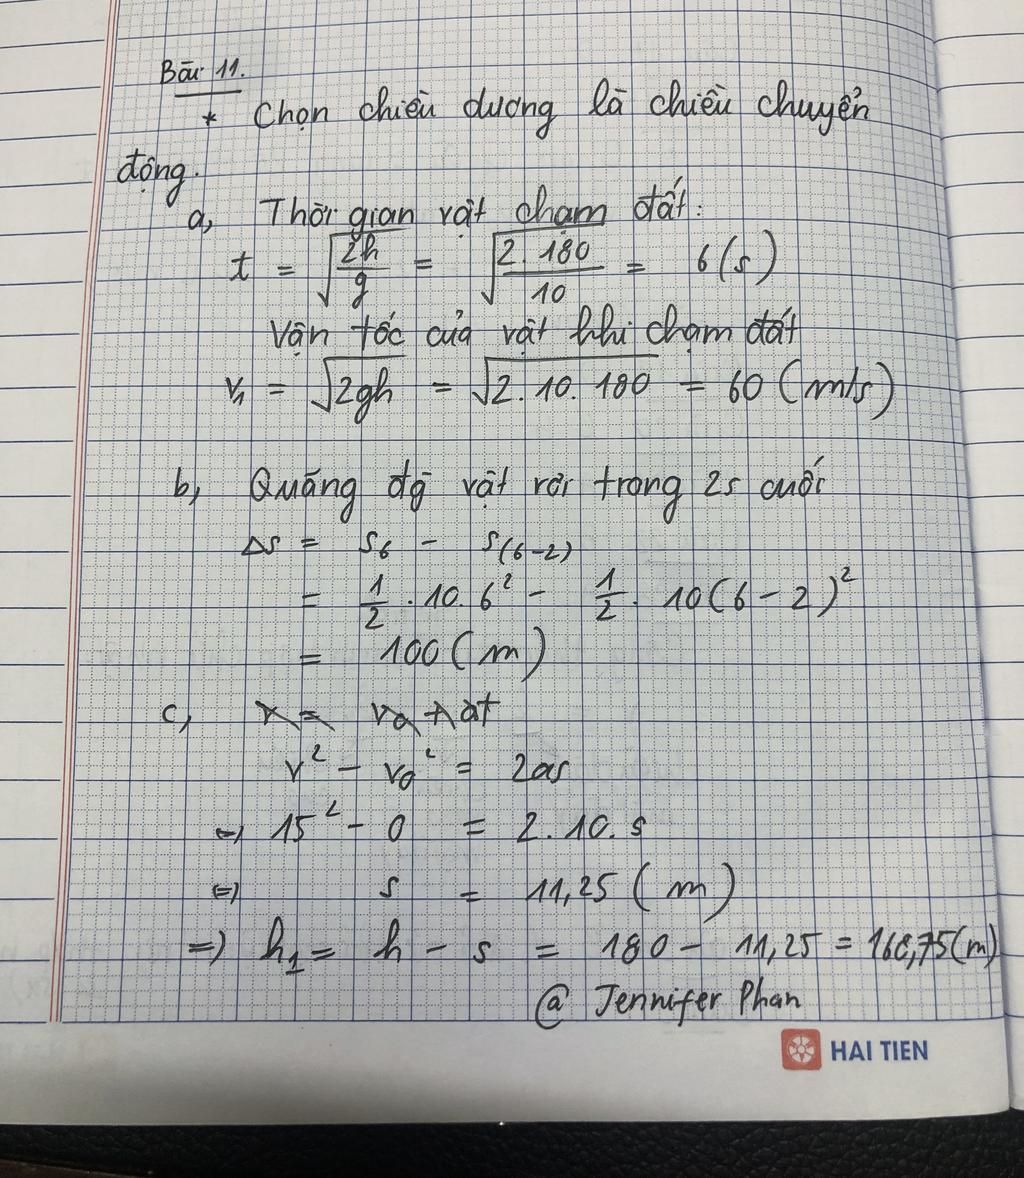 Bài 11.
* Chọn chiều dương là chiều chuyển
động.
a, Thời gian vật chạm đất:
t = √(2h/g) = √(2.180/10) = 6(s)
Vận tốc của vật khi chạm đất
v₁ = √2gh = √2.10.180 = 60 (m/s)
b, Quãng đg vật rơi trong 2s cuối
Δs = s₆ - s₍₆₋₂₎
= 1/2 . 10. 6² - 1/2 . 10(6-2)²
= 100(m)
c, v = v₀ + at
v² - v₀² = 2as
⇔ 15² - 0 = 2.10.s
⇔ s = 11,25 (m)
=> h₁ = h - s = 180 - 11,25 = 168,75(m)
@ Jennifer Phan
HAI TIEN